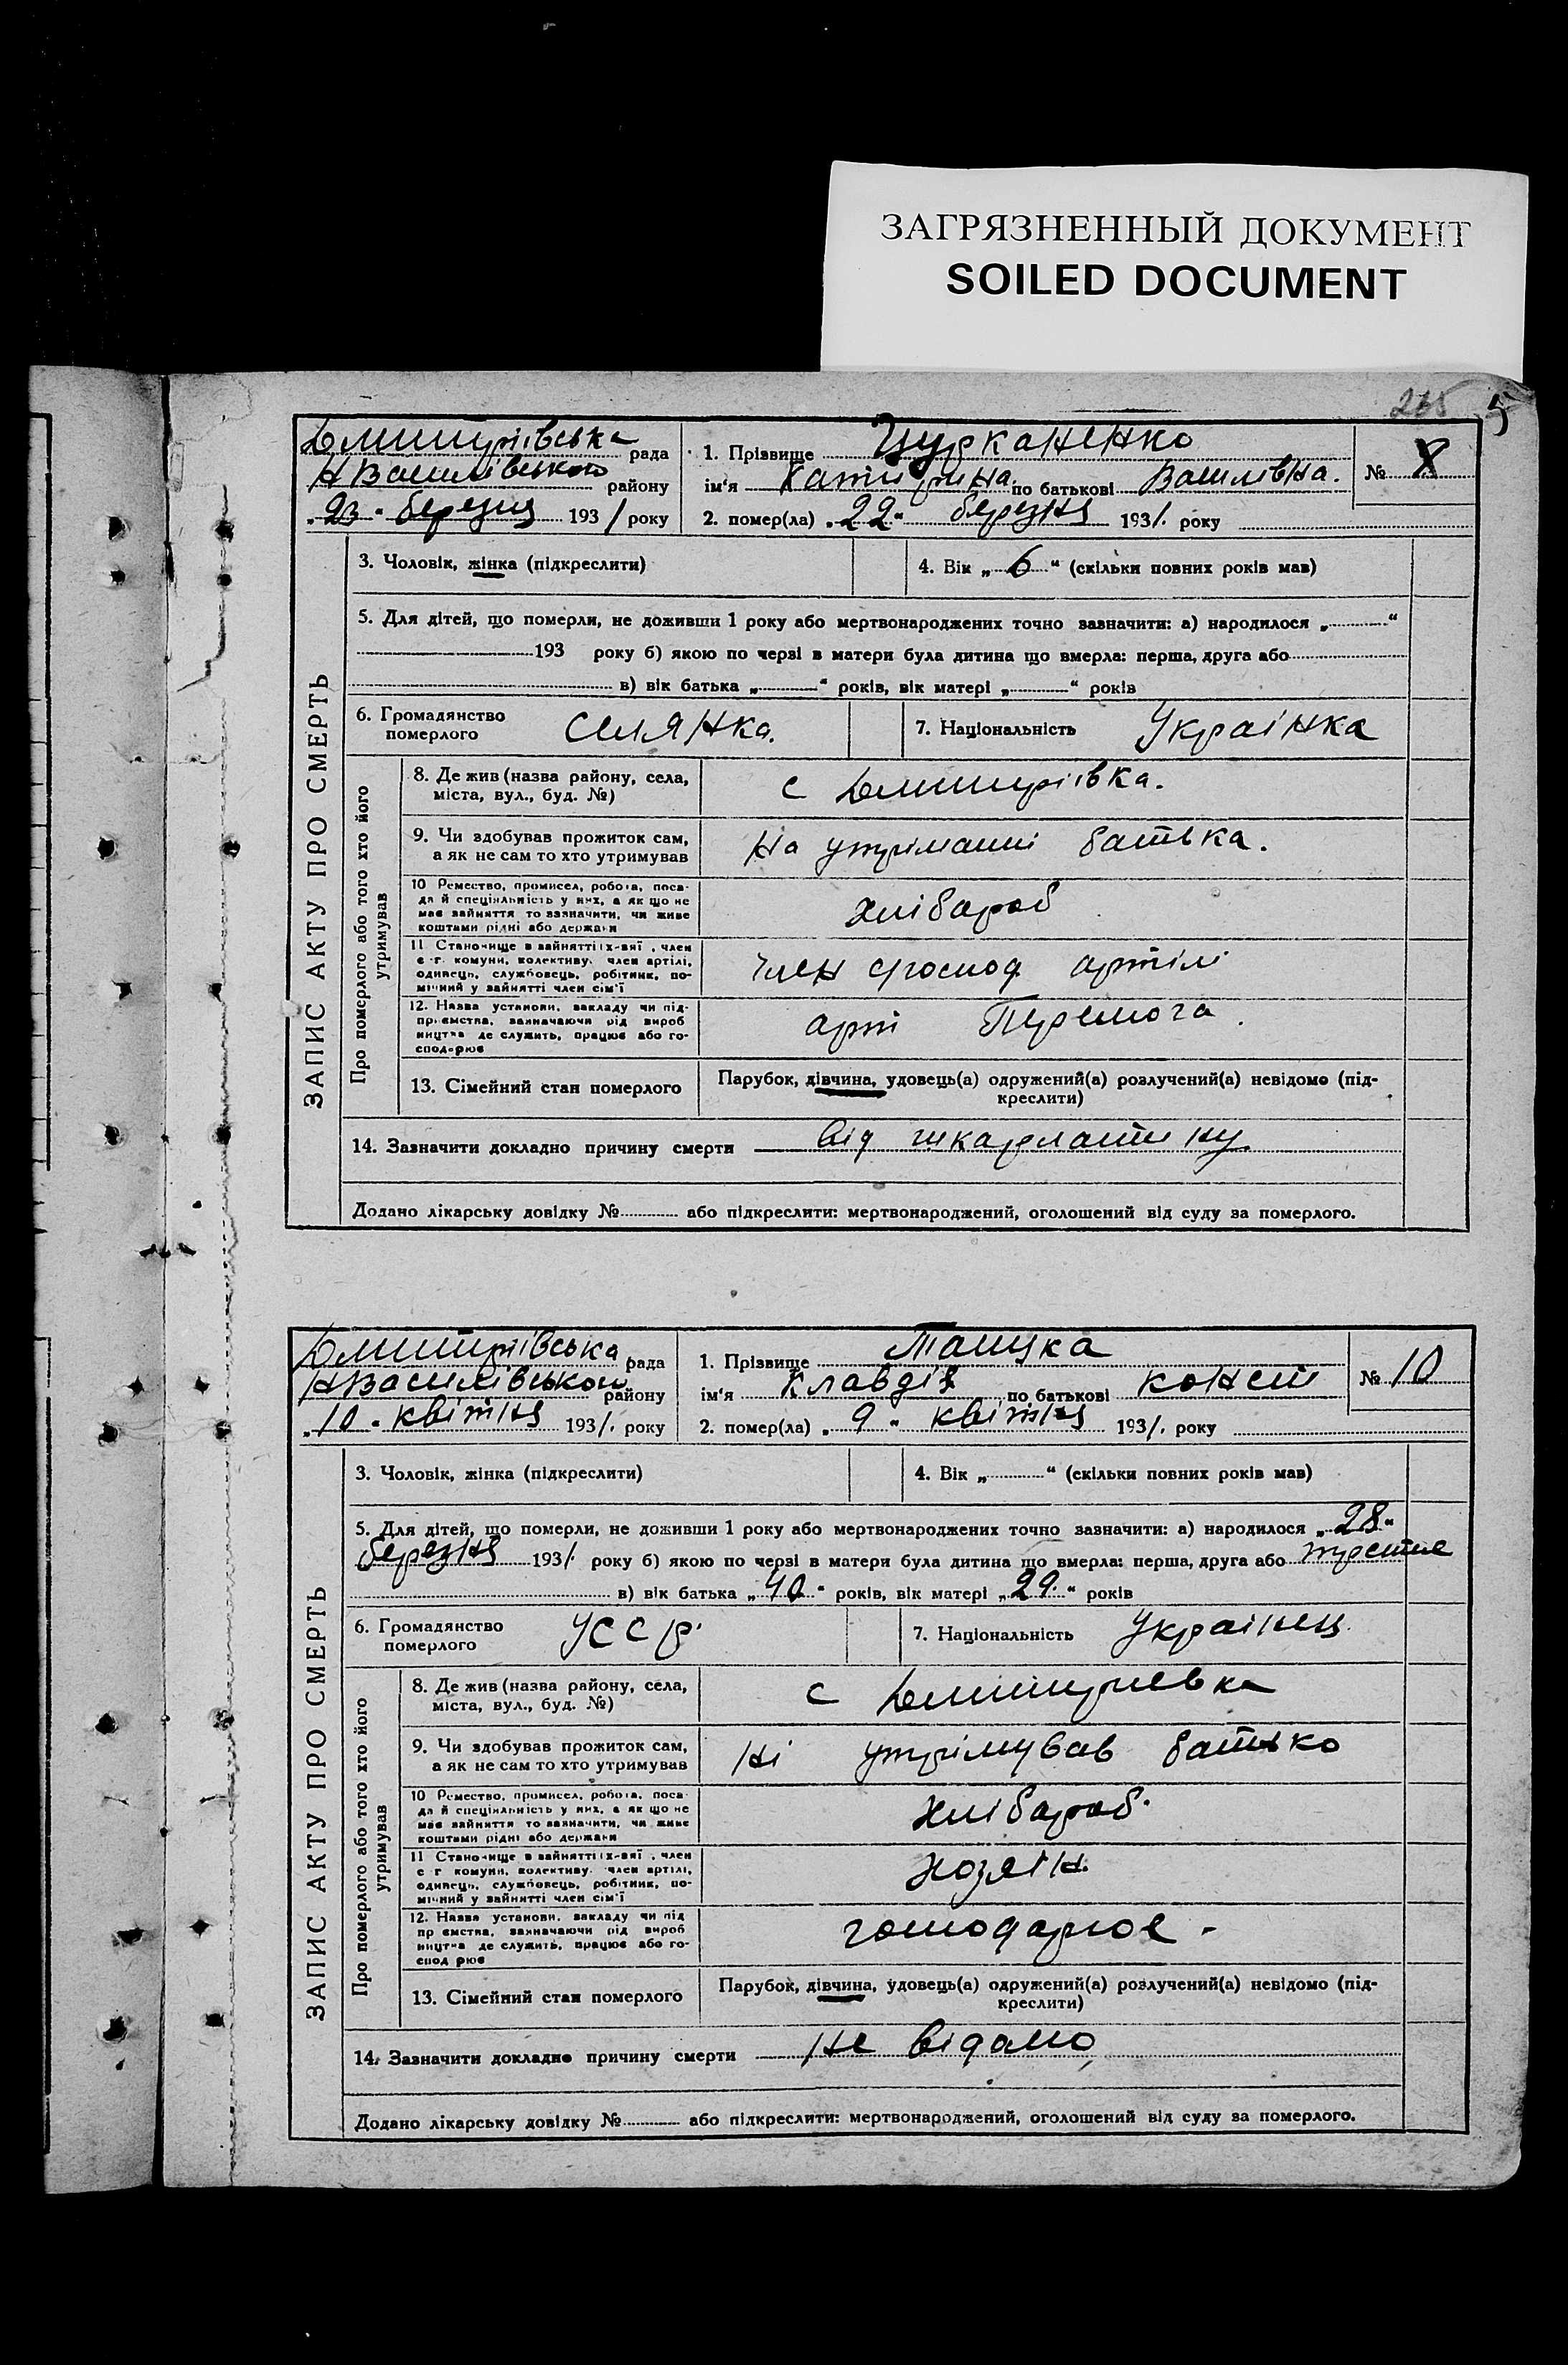 ЗАГРЯЗНЕННЫЙ ДОКУМЕНТ
SOILED DOCUMENT
265 5
ЗАПИС АКТУ ПРО СМЕРТЬ
Дмитриівська рада
НВасилівського району
„23" березня 1931 року
1. Прізвище Цурканенко
ім'я Катирина по батькові Василівна.
№ 8
2. помер(ла) „22" березня 1931. року
3. Чоловік, жінка (підкреслити)
4. Вік „6" (скільки повних років мав)
5. Для дітей, що померли, не доживши 1 року або мертвонароджених точно зазначити: а) народилося „ "
193 року б) якою по черзі в матери була дитина що вмерла: перша, друга або
в) вік батька „ " років, вік матері „ " років
6. Громадянство померлого селянка.
7. Національність Украінка
Про померлого або того хто його утримував
8. Де жив (назва району, села,
міста, вул., буд. №)
с Дмитриівка.
9. Чи здобував прожиток сам,
а як не сам то хто утримував
На утріманні батька.
10 Ремество, промисел, робота, поса-
да й спеціяльність у них, а як що не
має зайняття то зазначити, чи живе
коштами рідні або держави
хлібароб
11 Становище в зайнятті їх-веї, член
с-г. комуни, колективу, член артілі,
одинець, службовець, робітник, по-
мічний у зайнятті член сім'ї
член сгоспод артілі
12. Назва установи, закладу чи під-
приємства, зазначаючи рід вироб
ництва де служить, працює або го-
сподарює
арт Перемога.
13. Сімейний стан померлого
Парубок, дівчина, удовець(а) одружений(а) розлучений(а) невідомо (під-
креслити)
14. Зазначити докладно причину смерти від шкарлатину.
Додано лікарську довідку № або підкреслити: мертвонароджений, оголошений від суду за померлого.
ЗАПИС АКТУ ПРО СМЕРТЬ
Дмитриівська рада
НВасилівського району
„10" квітня 1931. року
1. Прізвище
ім'я Клавдія по батькові Конст
№ 10
2. помер(ла) „9" квітня 1931. року
3. Чоловік, жінка (підкреслити)
4. Вік „ " (скільки повних років мав)
5. Для дітей, що померли, не доживши 1 року або мертвонароджених точно зазначити: а) народилося „28"
березня 1931. року б) якою по черзі в матери була дитина що вмерла: перша, друга або третье
в) вік батька „40" років, вік матері „29." років
6. Громадянство померлого УССР.
7. Національність Украінец.
Про померлого або того хто його утримував
8. Де жив (назва району, села,
міста, вул., буд. №)
с Дмитриевка
9. Чи здобував прожиток сам,
а як не сам то хто утримував
Ні утрімував батько
10 Ремество, промисел, робота, поса-
да й спеціяльність у них, а як що не
має зайняття то зазначити, чи живе
коштами рідні або держави
хлібароб.
11 Становище в зайнятті їх-веї, член
с г комуни, колективу, член артілі,
одинець, службовець, робітник, по-
мічний у зайнятті член сім'ї
хозяін.
12. Назва установи, закладу чи під
пр ємства, зазначаючи рід вироб
ництва де служить, працює або го-
спод рює
господарює -
13. Сімейний стан померлого
Парубок, дівчина, удовець(а) одружений(а) розлучений(а) невідомо (під-
креслити)
14. Зазначити докладно причину смерти Не відомо
Додано лікарську довідку № або підкреслити: мертвонароджений, оголошений від суду за померлого.